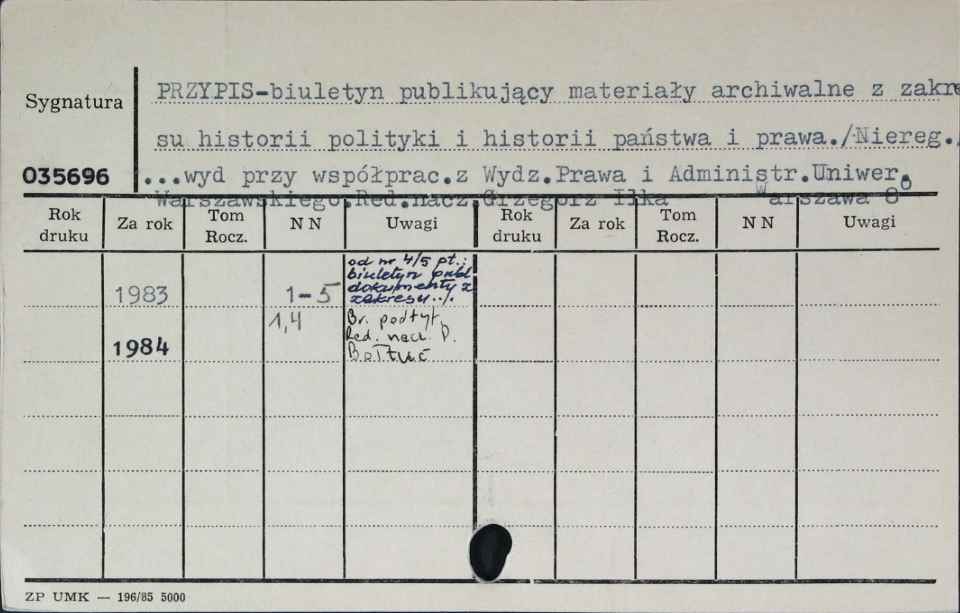 Sygnatura
PRZYPIS-biuletyn publikujący materiały archiwalne z zakre
su historii polityki i historii państwa i prawa./Niereg./
035696
...wyd przy współprac.z Wydz.Prawa i Administr.Uniwer.
Warszawskiego.Red.nacz.Grzegorz Iłka Warszawa 8
Rok druku Za rok Tom Rocz. N N Uwagi Rok druku Za rok Tom Rocz. N N Uwagi
od nr 4/5 pt.:
biuletyn publ
dokumenty z
1983 1-5 zakresu../.
1,4 Br. podtyt.
Red. nacz. P.
1984 Bołtuć
ZP UMK — 196/85 5000